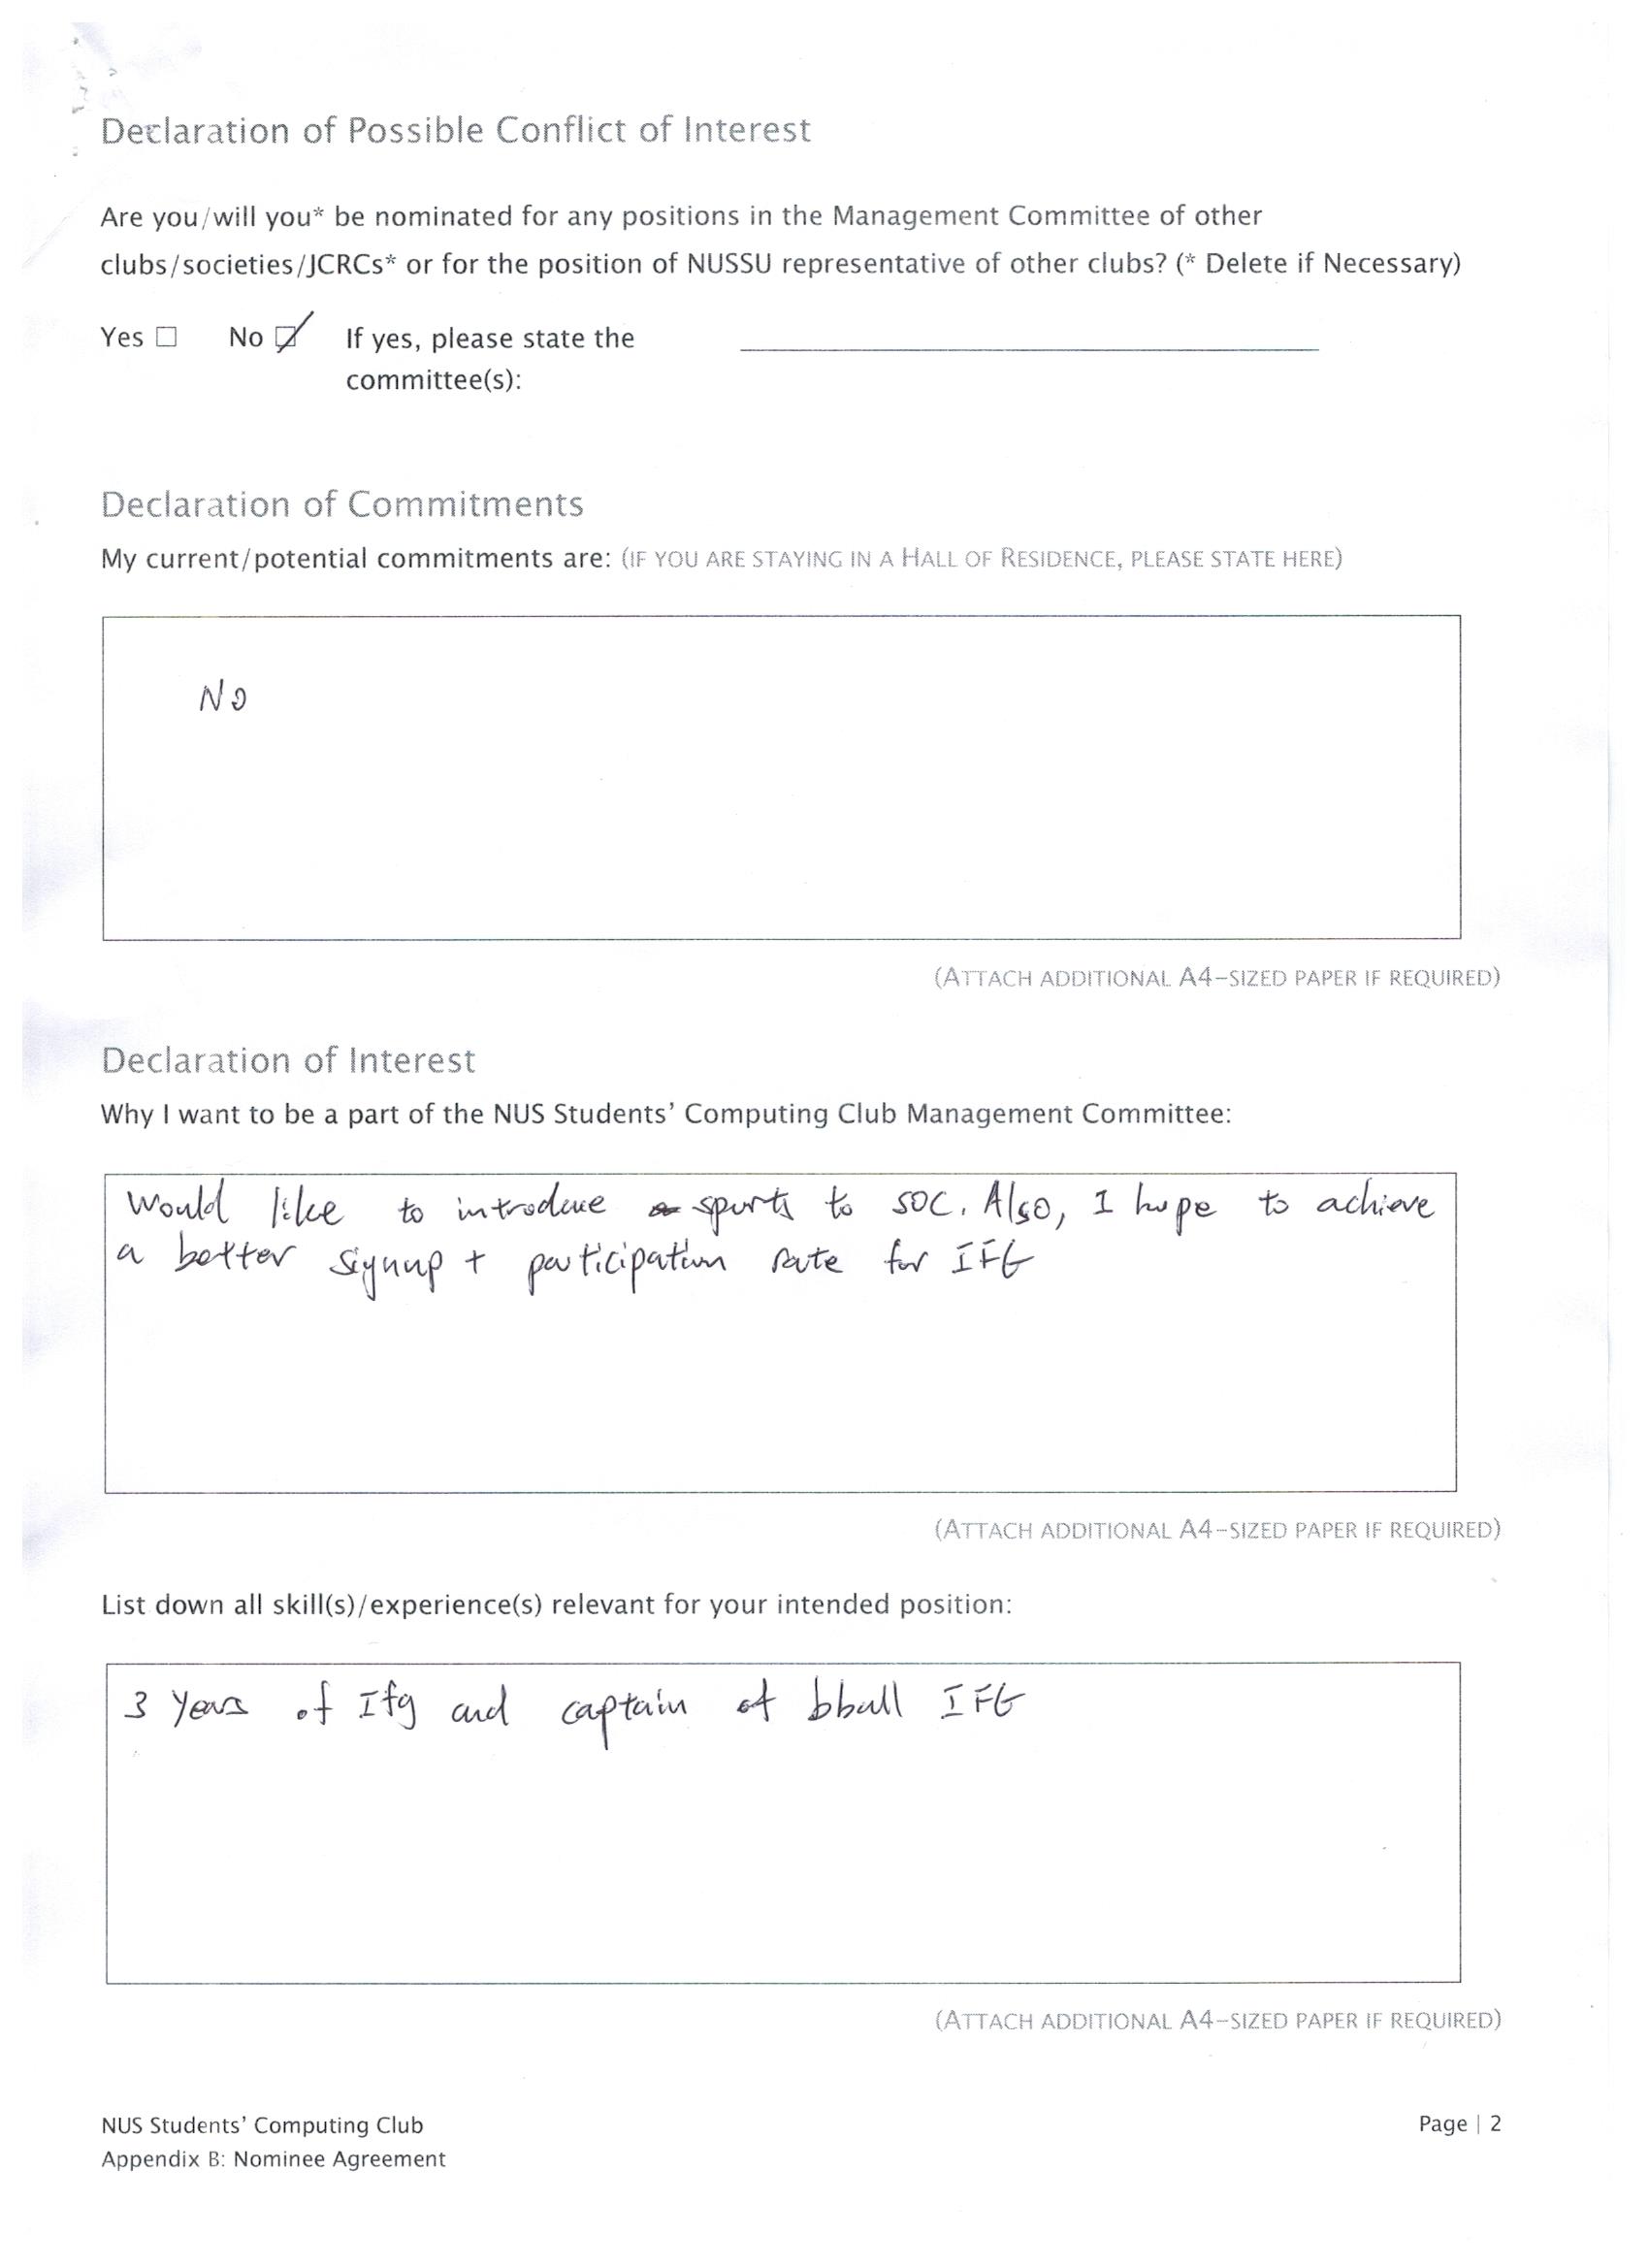 Declaration of Possible Conflict of Interest
Are you/will you* be nominated for any positions in the Management Committee of other
clubs/societies/JCRCs* or for the position of NUSSU representative of other clubs? (* Delete if Necessary)
Yes ☐ No ☑ If yes, please state the
committee(s):
Declaration of Commitments
My current/potential commitments are: (IF YOU ARE STAYING IN A HALL OF RESIDENCE, PLEASE STATE HERE)
No
(ATTACH ADDITIONAL A4-SIZED PAPER IF REQUIRED)
Declaration of Interest
Why I want to be a part of the NUS Students' Computing Club Management Committee:
Would like to introduce sports to SOC. Also, I hope to achieve
a better signup + participation rate for IFG
(ATTACH ADDITIONAL A4-SIZED PAPER IF REQUIRED)
List down all skill(s)/experience(s) relevant for your intended position:
3 Years of Ifg and captain of bball IFG
(ATTACH ADDITIONAL A4-SIZED PAPER IF REQUIRED)
NUS Students' Computing Club Page | 2
Appendix B: Nominee Agreement